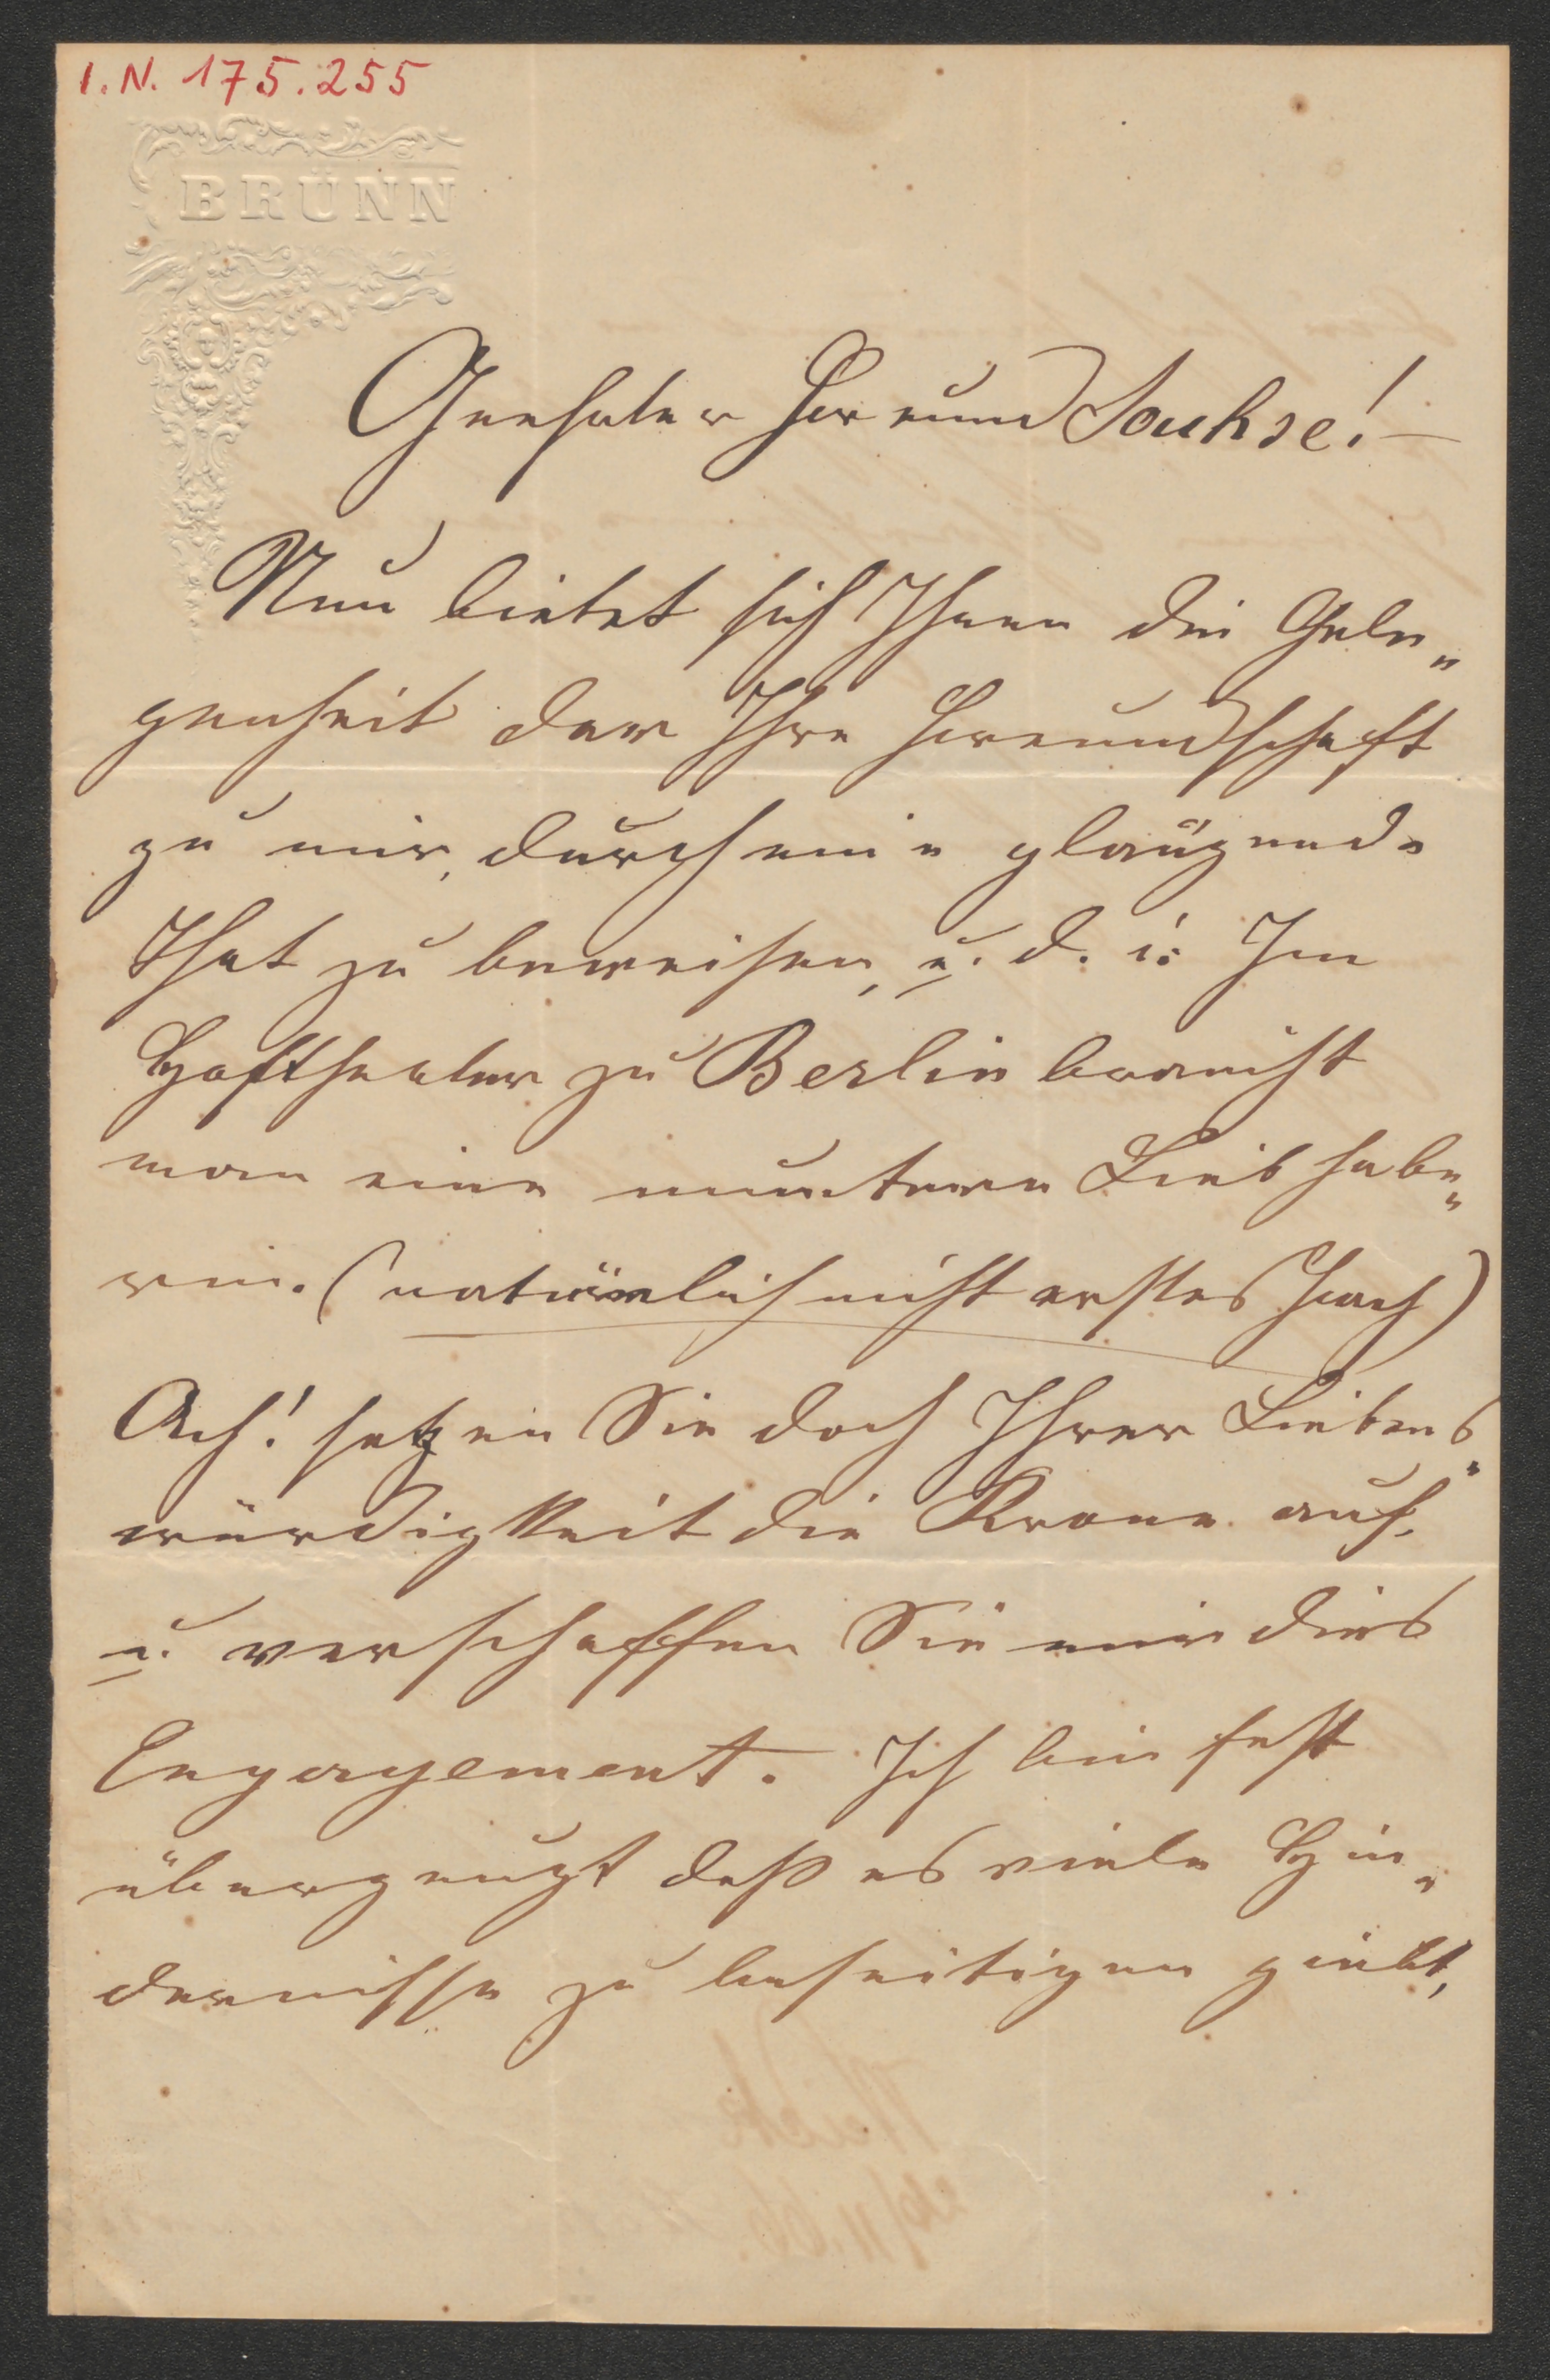 I.N. 175.255
BRÜNN
Geehrter Freund Souhse!—
Nun bietet sich Ihnen die Gele„
genheit dar Ihre Freundschaft
zu mir, durch eine glänzende
That zu beweisen, u. d. i: Im
Hoftheater zu Berlin braucht
man eine muntere Liebhabe„
rin. (natürlich nicht erstes Fach)
Ach! setzen Sie doch Ihrer Liebens„
würdigkeit die Krone auf.
u. verschaffen Sie mir dies
Engagement. Ich bin fest
überzeugt daß es viele Hin„
dernisse zu beseitigen giebt,